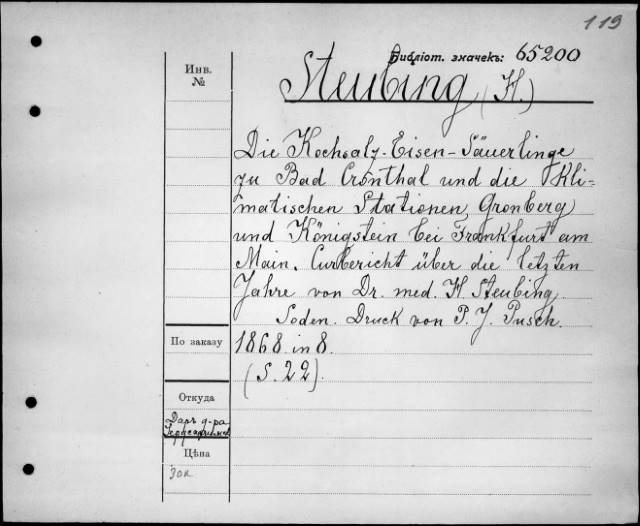 119
Библіот. значекъ: 65200
Инв.
№
Steubing (H.)
Die Kochsalz-Eisen-Säuerlinge
zu Bad Cronthal und die Kli-
matischen Stationen, Gronberg
und Königstein bei Frankfurt am
Main. Curbericht über die letzten
Jahre von Dr. med. H. Steubing.
Soden. Druck von P. J. Pusch.
По заказу
1868. in 8.
(S. 22).
Откуда
Даръ д-ра
Цѣна
30к